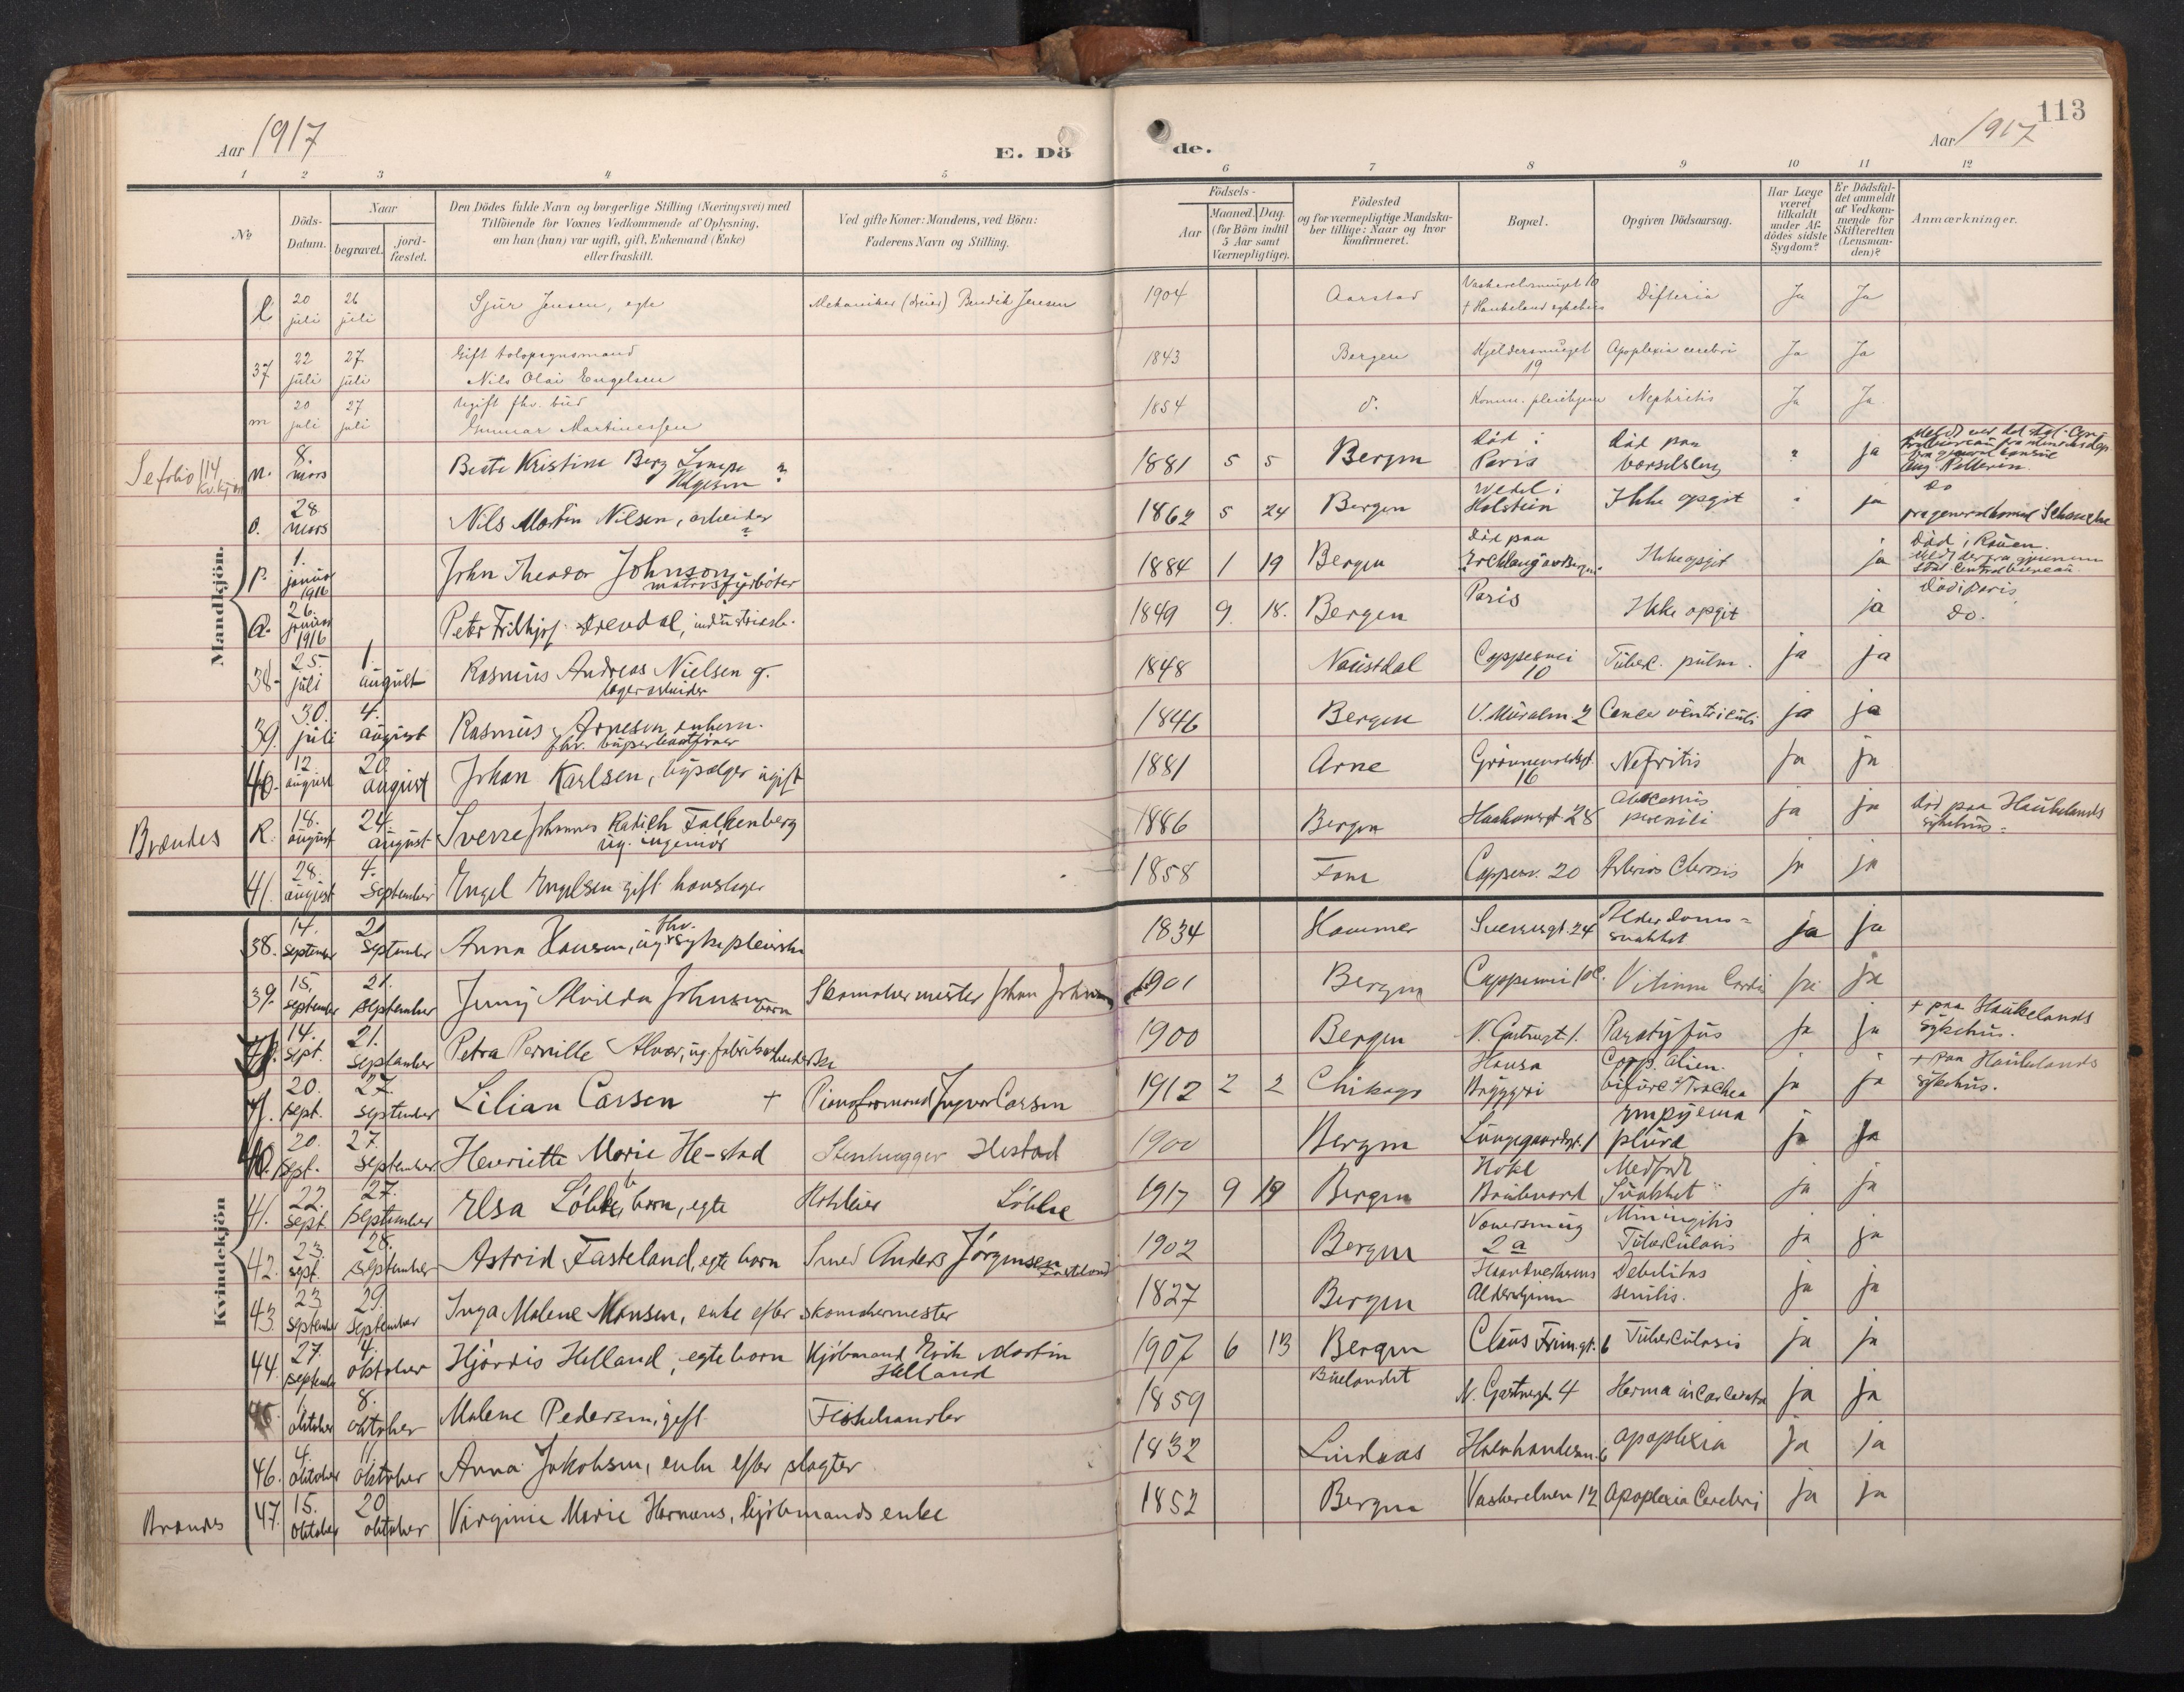 113
Aar 1917
E. Dö
de.
Aar 1917
1 2 3 4 5 6 7 8 9 10 11 12
No
Döds-Datum.
Naar
begravet.
jord-fæstet.
Den Dödes fulde Navn og borgerlige Stilling (Næringsvei) med
Tilföiende for Voxnes Vedkommende af Oplysning,
om han (hun) var ugift, gift, Enkemand (Enke)
eller fraskilt.
Ved gifte Koner: Mandens, ved Börn:
Faderens Navn og Stilling.
Födsels-
Aar
Maaned. Dag.
(for Börn indtil
5 Aar samt
Værnepligtige).
Födested
og for værnepligtige Mandska-
ber tillige: Naar og hvor
konfirmeret.
Bopæl.
Opgiven Dödsaarsag.
Har Læge
været
tilkaldt
under Af-
dödes sidste
Sygdom?
Er Dödsfal-
det anmeldt
af Vedkom-
mende for
Skifteretten
(Lensman-
den)?
Anmærkninger.
Mandkjön.
l 20 juli 26 juli Sjur Jensen, egte Mekaniker (dreier) Bendik Jensen 1904 Aarstad + Haukeland sykehus Difteria Ja Ja
37 22 juli 27 juli Gift
Nils Olai Engelsen 1843 Bergen Kjeldersmuget 19 Apoplexia cerebri Ja Ja
m 20 juli 27 juli Ugift fhv. bud
Gunnar Martinessen 1854 d. Komm. pleiehjem Nephritis Ja Ja
Se folio 114
n. 8. mars Berte Kristine Berg
Helgesen ? 1881 5 5 Bergen Död i Paris Död paa barselseng " ja
o. 28 mars Nils Martin Nilsen, arbeider 1862 5 24 Bergen Wedel i Holstein Ikke opgit " ja do
fra generalkonsul
p. 1. januar 1916 John Theodor Johnson
matros fyrböter 1884 1 19 Bergen Död paa Ikke opgit ja Död i Rouen.
Q. 26. januar 1916 Peter Fritthjof industriarb. 1849 9. 18. Bergen Paris Ikke opgit ja Död i Paris
do.
38. 25. juli 1. august Rasmus Andreas Nielsen g.
lagerarbeider 1848 Naustdal Cappesvei 10 Tuberc. pulm. ja ja
39. 30. juli 4. august Rasmus Arnesen, enkem.
1846 Bergen V. Muralm. 2 Cancer ventriculi ja ja
40. 12. august 20. august Johan Karlsen, ugift 1881 Arne Grönnevoldsgt. 16 Nefritis ja ja
Brændes
R. 18. august 24. august Sverre Johannes Falkenberg
ug. ingeniör 1886 Bergen Haakonsgt. 28 ja ja Död paa Haukelands
sykehus.
41. 28. august 4. September Engel Engelsen gift 1858 Fana Cappesv. 20 ja ja
Kvindekjön
38. 14. September 21 September Anna Hansen, ug. fhv. sykepleierske 1834 Hammer Sverresgt. 24 Alderdoms-
svakhet ja ja
39. 15. September 21. September Jenny Alvilda Johnsen
barn Skomakermester Johan Johnsen 1901 Bergen Cappesvei 10c. Vitium Cordis ja ja
14. Sept. 21. September Petra Pernille Alvær, ug. fabrikarbeiderske 1900 Bergen N. Gartnergt. 1. Paratyfus ja ja + paa Haukelands
Sykehus.
20. Sept. 27. September Lilian Carsen + Pianoformand Ingvar Carsen 1912 2 2 Chikago Hansa
Bryggeri Corp. alien.
bifurc. Trachea ja ja + paa Haukelands
Sykehus.
40. 20. Sept. 27. September Henriette Marie He-stad Stenhugger Hestad 1900 Bergen Lungegaardsgt. 1 Empyema
pleura ja ja
41. 22. Sept. 27. September Elsa Lökke barn, egte Hoteleier Lökke 1917 9 19 Bergen Hotel
Boulevard Medfödt
Svakhet ja ja
42. 23. Sept. 28. September Astrid Fasteland, egte barn Smed Anders Jörgensen
Fasteland 1902 Bergen 2a Miningitis
Tuberculosis ja ja
43. 23. September 29. September Inga Malene Monsen, enke efter skomakermester 1827 Bergen Haandverkernes
Aldershjem Debilitas
senilis. ja ja
44. 27. September 4. oktober Hjördis Helland, egte barn Kjöbmand Erik Martin
Helland 1907 6 13 Bergen Claus Friisgt. 6 Tuberculosis ja ja
45. 1. oktober 8. oktober Malene Pedersen, gift Fiskehandler 1859 Buelandet N. Gartnergt. 4 Hernia incarcerata ja ja
46. 4. oktober 11. oktober Anna Jakobsen, enke efter slagter 1832 Lindaas apoplexia ja ja
Brændes
47. 15. oktober 20. oktober Virginie Marie Harmens, kjöbmands enke 1852 Bergen Vaskerelven 12 Apoplexia Cerebri ja ja